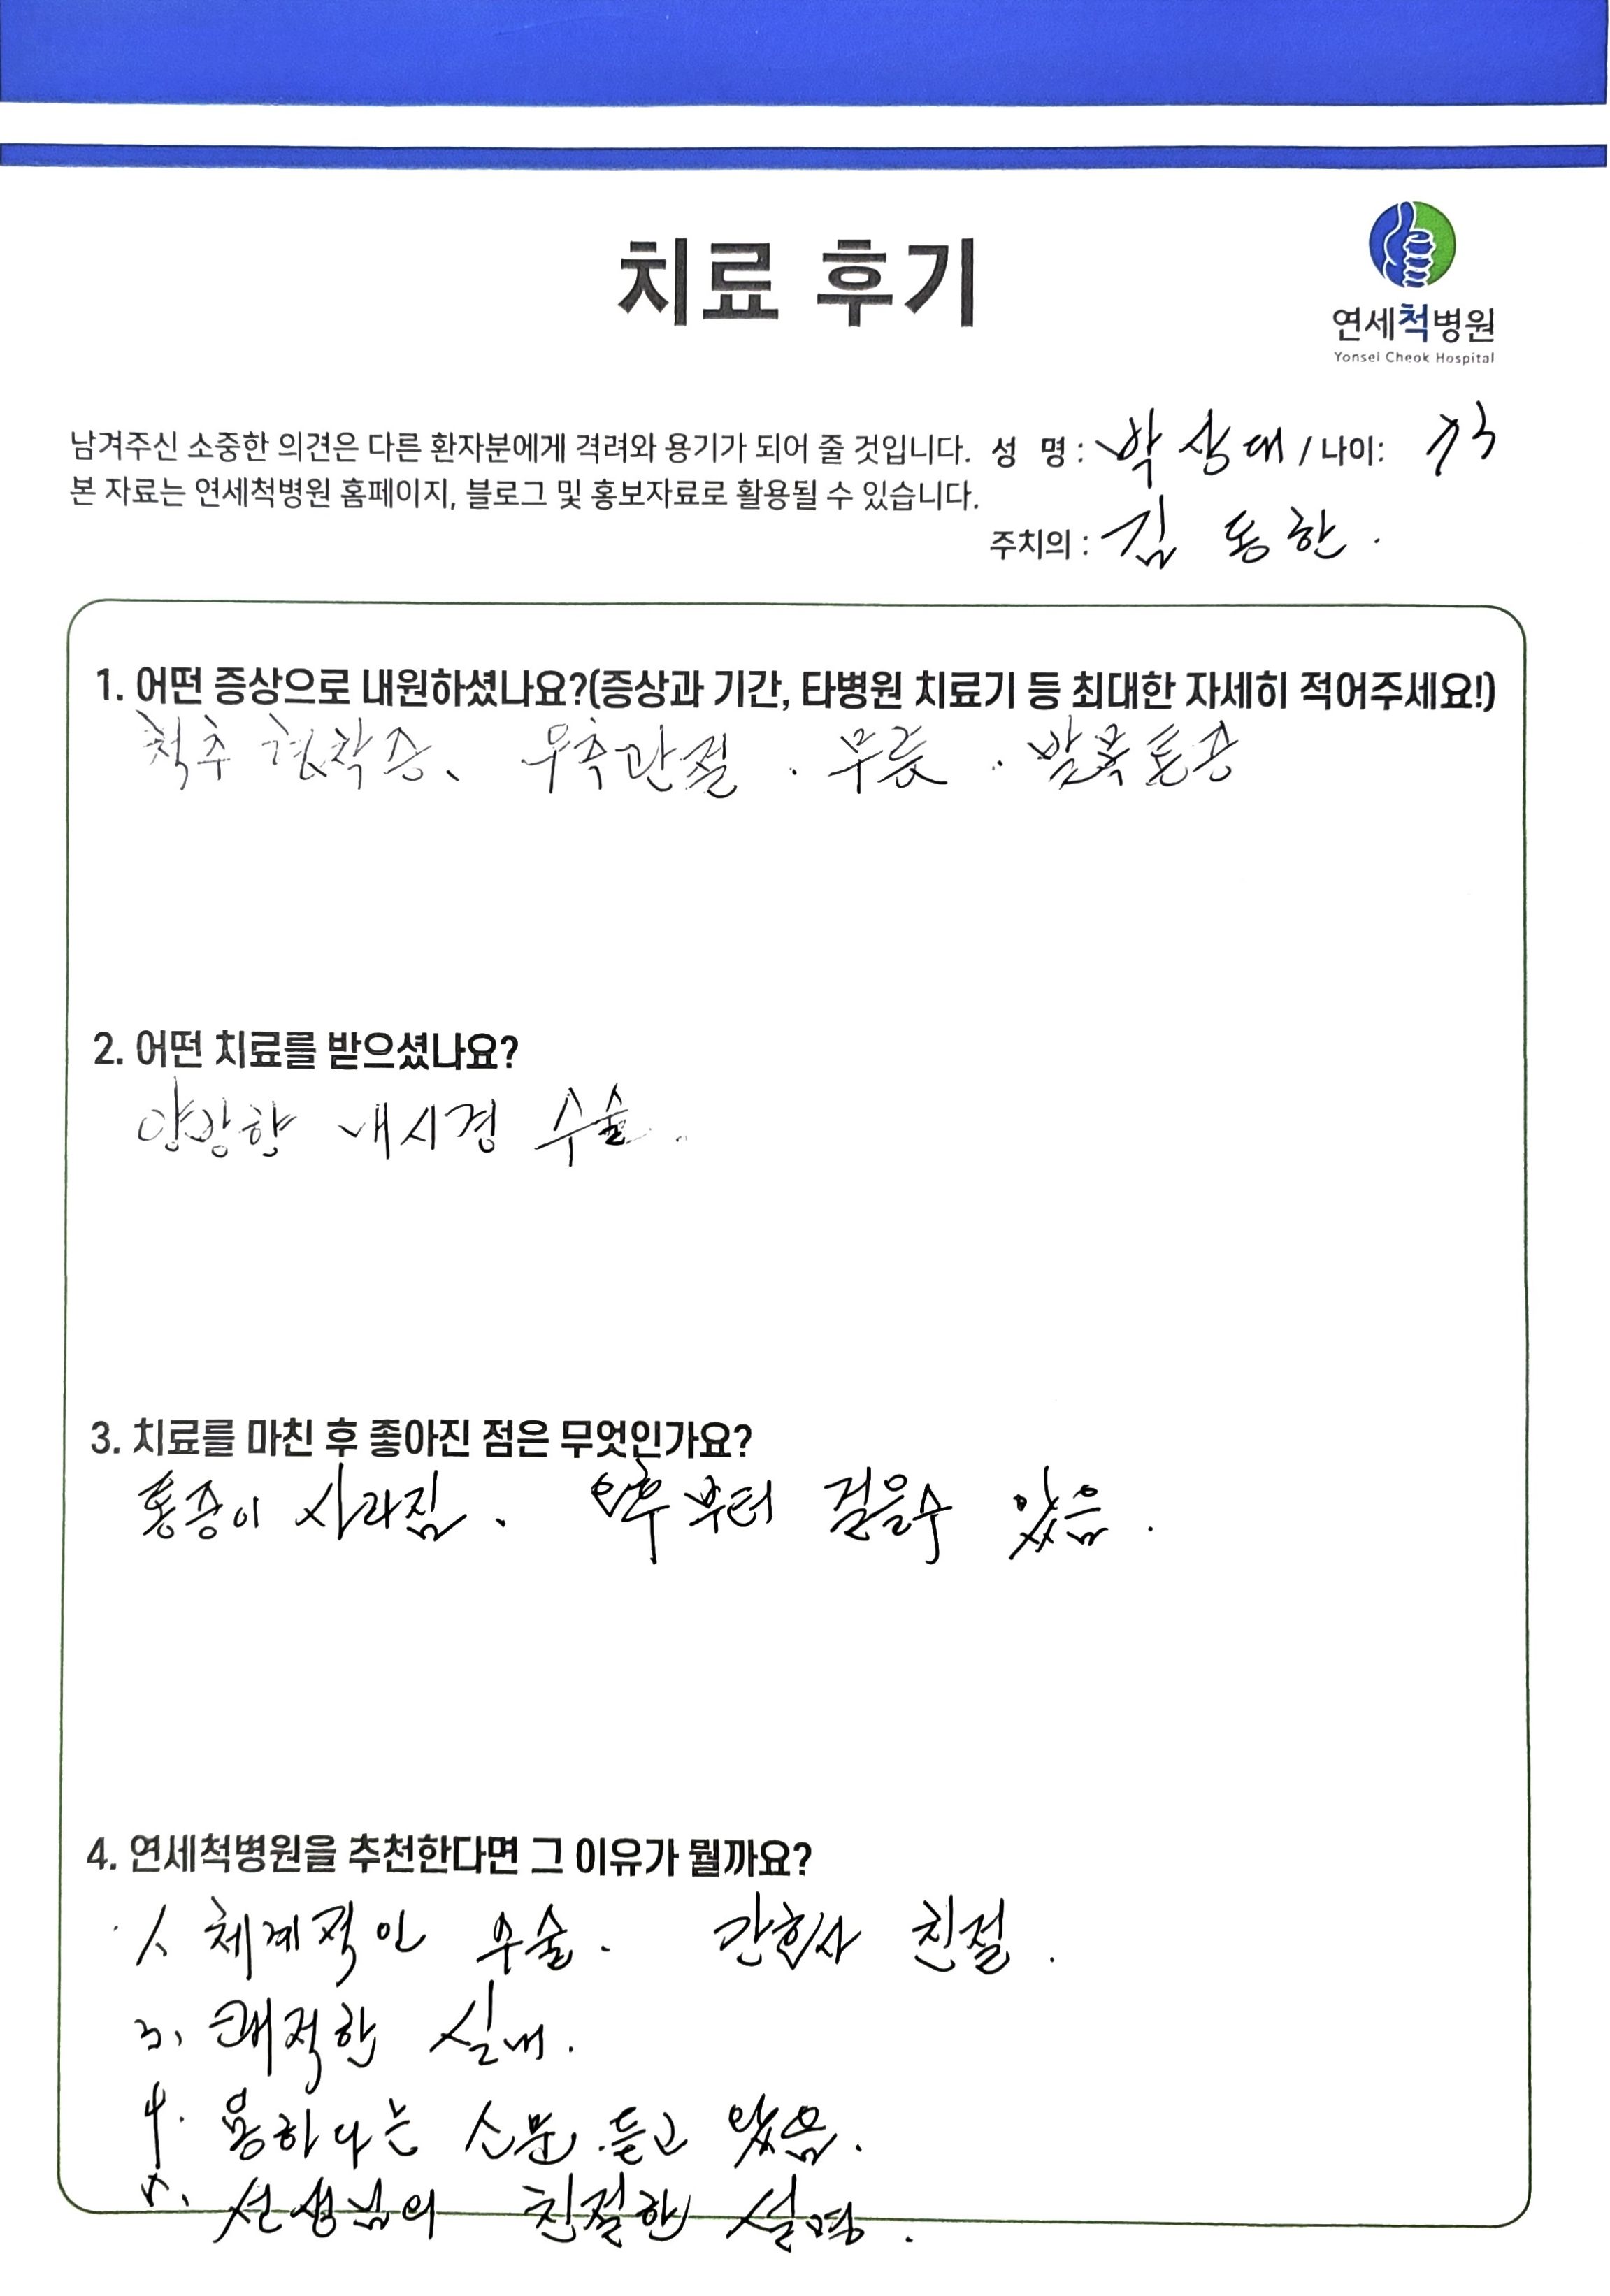 치료 후기
연세척병원
Yonsei Cheok Hospital
남겨주신 소중한 의견은 다른 환자분에게 격려와 용기가 되어 줄 것입니다. 성 명 : 박상대 / 나이: 73
본 자료는 연세척병원 홈페이지, 블로그 및 홍보자료로 활용될 수 있습니다.
주치의 : 김 동한.
1. 어떤 증상으로 내원하셨나요?(증상과 기간, 타병원 치료기 등 최대한 자세히 적어주세요!)
척추 협착증、 우측관절 . 무릎 . 발목통증
2. 어떤 치료를 받으셨나요?
양방향 내시경 수술.
3. 치료를 마친 후 좋아진 점은 무엇인가요?
통증이 사라짐. 오후부터 걸을수 있음.
4. 연세척병원을 추천한다면 그 이유가 뭘까요?
1. 체계적인 수술. 간호사 친절.
3. 쾌적한 실내.
4. 용하다는 소문.듣고 왔음.
5. 선생님의 친절한 설명.